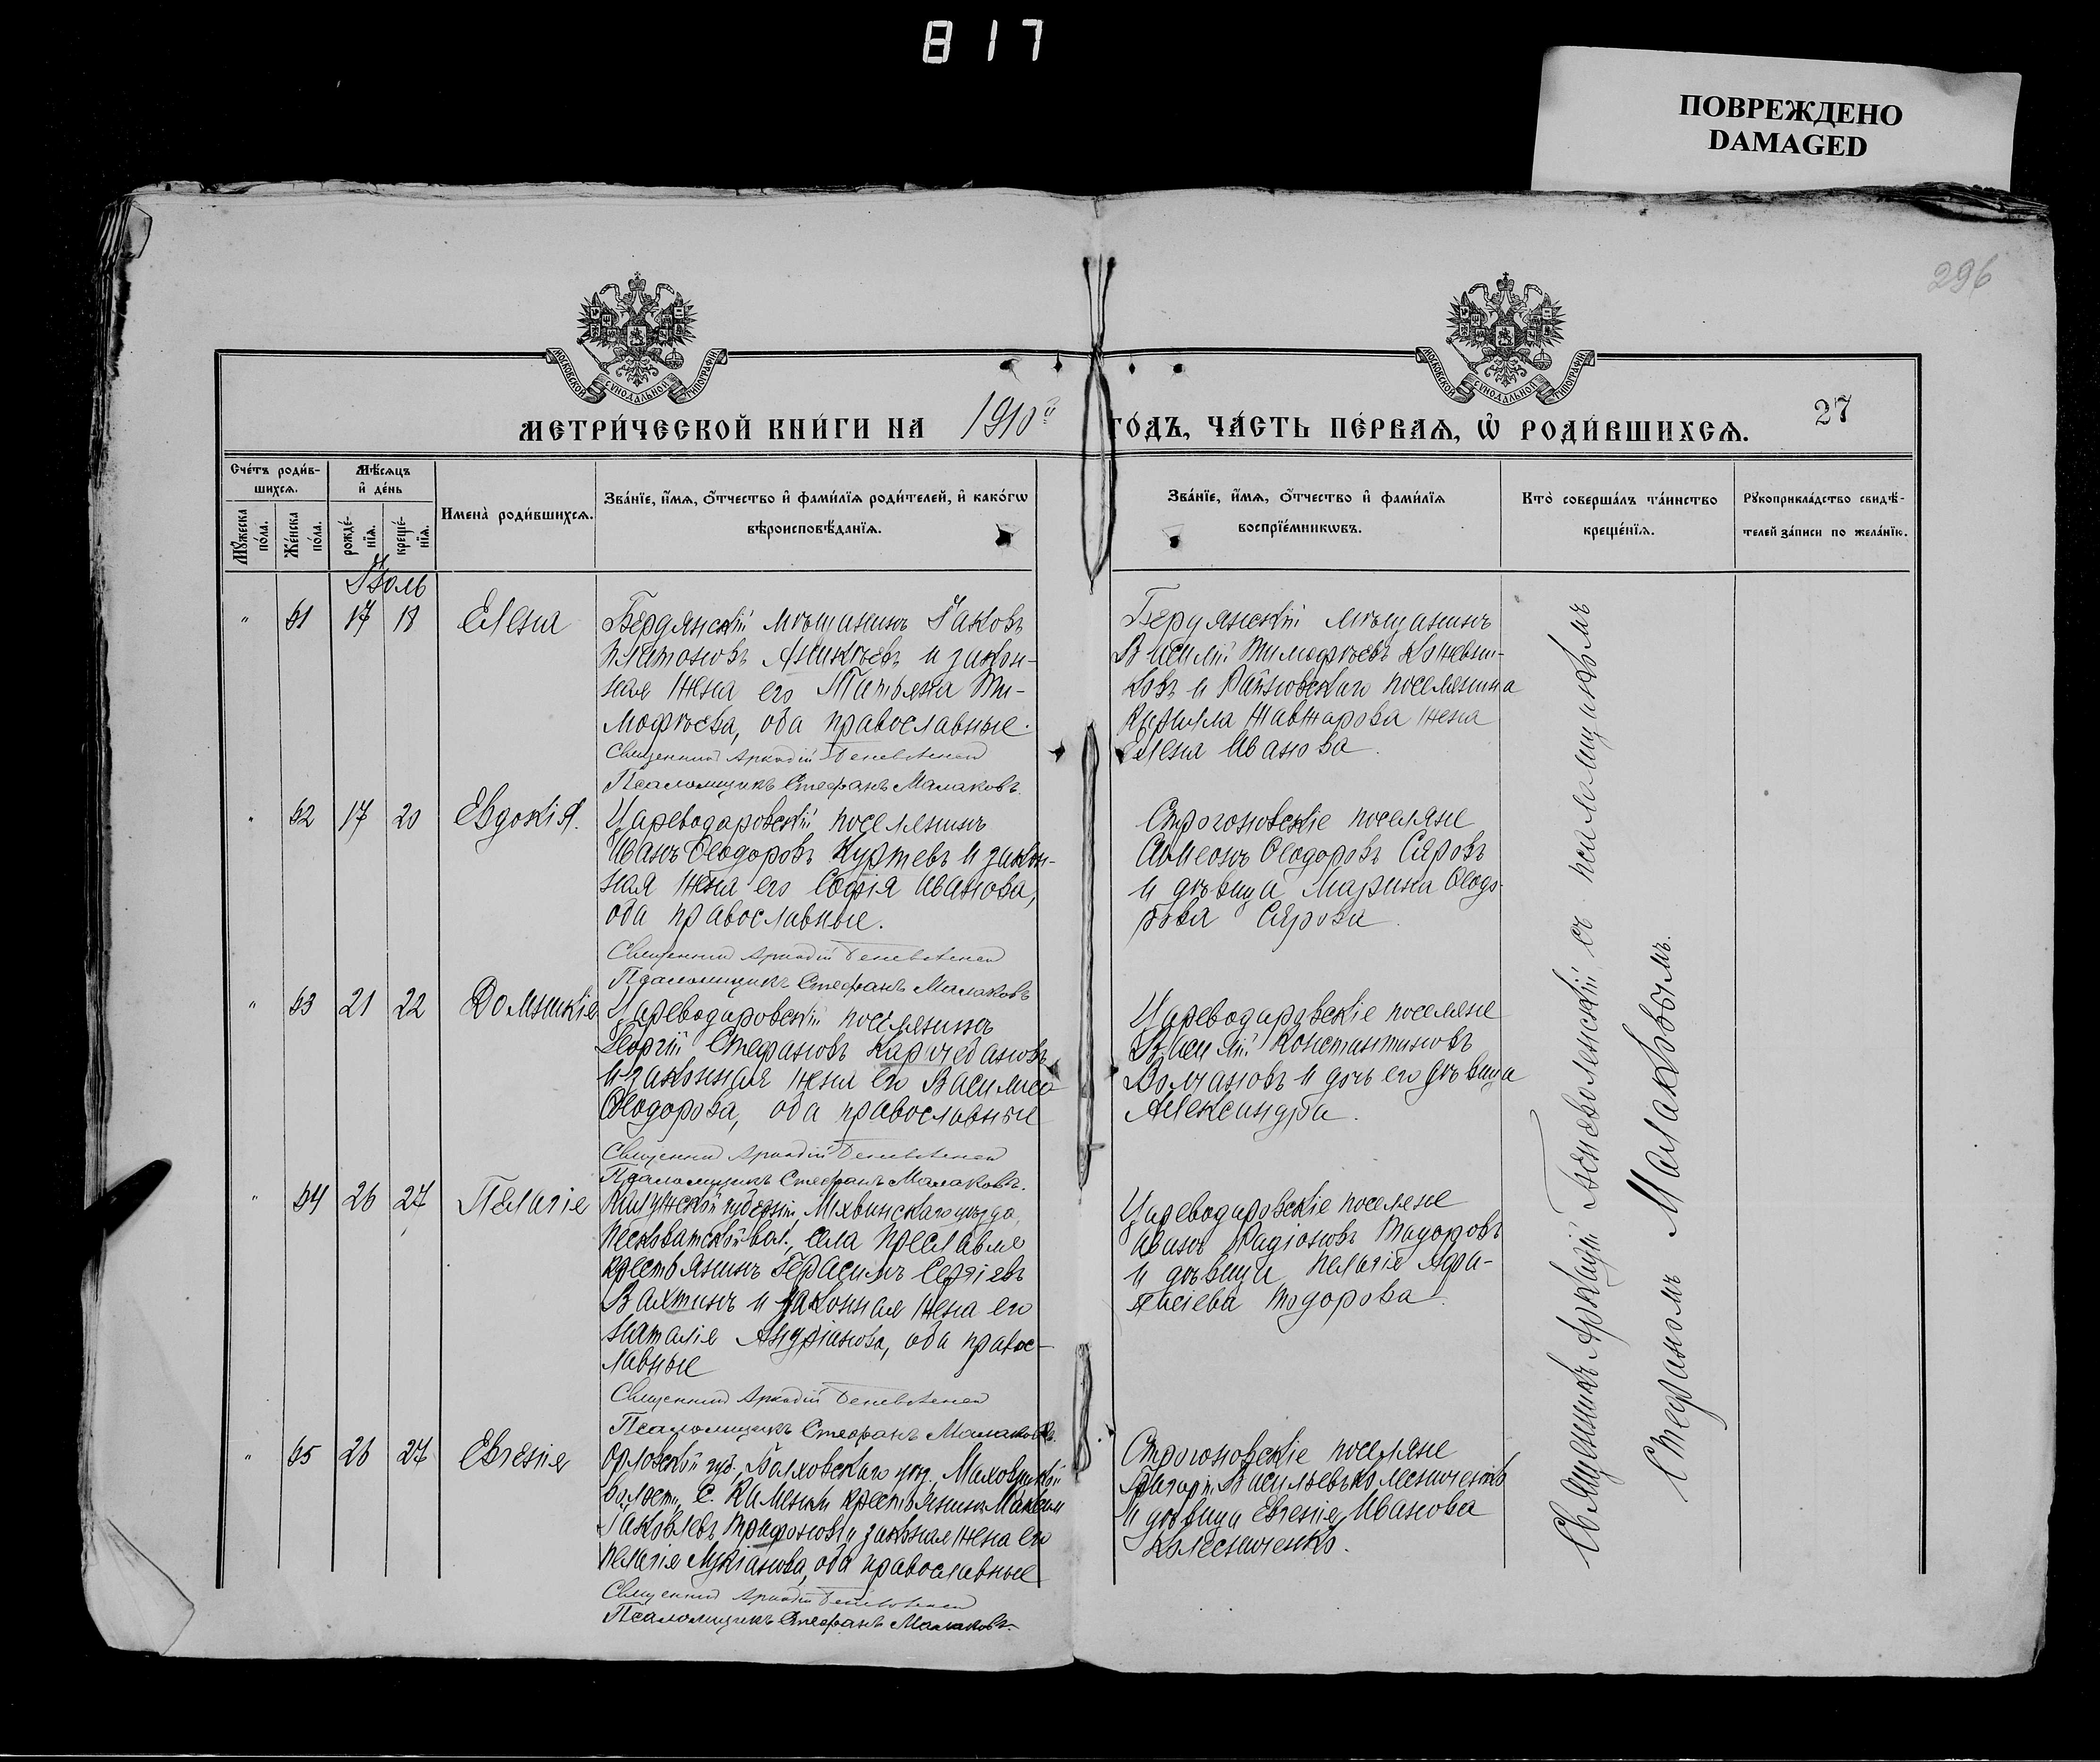 817
ПОВРЕЖДЕНО
DAMAGED
296
МОСКОВСКОЙ СѴНОДАЛЬНОЙ ТИПОГРАФІИ
МОСКОВСКОЙ СѴНОДАЛЬНОЙ ТИПОГРАФІИ
МЕТРИ́ЧЕСКОЙ КНИ́ГИ НА 1910й ГО́ДЪ, ЧА́СТЬ ПЕ́РВАѦ, Ѡ҆ РОДИ́ВШИХСѦ. 27
Сче́тъ роди́в-
шихсѧ.
Мѣ́сѧцъ
и҆ де́нь
Мꙋ́жеска по́ла.
Же́нска по́ла.
рожде́-
нїѧ.
креще́-
нїѧ.
Имена̀ роди́вшихсѧ.
Зва́нїе, и҆́мѧ, ѻ҆́тчество и҆ фами́лїѧ роди́телей, и҆ како́гѡ
вѣроисповѣ́данїѧ.
Зва́нїе, и҆́мѧ, ѻ҆́тчество и҆ фами́лїѧ
воспрїе́мникѡвъ.
Кто̀ соверша́лъ та́инство
креще́нїѧ.
Рꙋкоприкла́дство свидѣ́-
телей за́писи по жела́нїю.
Іюль
" 51 17 18 Елена
Бердянскій мѣщанинъ Іаковъ
Платоновъ Аникѣевъ и закон-
ная жена его Татьяна Ти-
мофѣева, оба православные.
Священник Аркадій Беневоленский
Псаломщикъ Стефанъ Малаковъ.
Бердянскій мѣщанинъ
Василій Тимофѣевъ Кожевни-
ковъ и Райновскаго поселянина
Кирилла Жавжарова жена
Елена Иванова.
" 52 17 20 Евдокія.
Цареводаровскій поселянинъ
Иванъ Ѳеодоровъ Куртевъ и закон-
ная жена его Софія Иванова,
оба православные.
Священник Аркадій Беневоленский
Псаломщикъ Стефанъ Малаковъ
Строгоновскіе поселяне
Симеонъ Ѳеодоровъ Сяровъ
и дѣвица Марина Ѳеодо-
рова Сярова.
" 53 21 22 Домникія
Цареводаровскій поселянинъ
Георгій Стефановъ Карчебановъ
и законная жена его Василиса
Ѳеодорова, оба православные
Священник Аркадій Беневоленский
Псаломщикъ Стефанъ Малаковъ.
Цареводаровскіе поселяне
Василій Константиновъ
Волчановъ и дочь его дѣвица
Александра.
" 54 26 27 Пелагія
Калужской губерніи, Лихвинскаго уѣзда,
Песковатской вол., села Преславля
крестьянинъ Герасимъ Сергіевъ
Вахтинъ и законная жена его
Наталія Андріанова, оба правос-
лавные
Священник Аркадій Беневоленский
Псаломщикъ Стефанъ Малаковъ.
Цареводаровскіе поселяне
Иванъ Радіоновъ Тодоровъ
и дѣвица Пелагія Афа-
насіева Тодорова.
" 55 26 27 Евгенія
Орловской губ., Болховскаго уѣз.,
волости, С. Каменки крестьянинъ Максим
Іаковлевъ Трифоновъ и законная жена его
Пелагія Лукіанова, оба православные
Священник Аркадій Беневоленский
Псаломщикъ Стефанъ Малаковъ.
Строгоновскіе поселяне
Григорій Васильевъ Колесниченко
и дѣвица Евгенія Иванова
Колесниченко.
Священникъ Аркадій Беневоленскій съ псаломщикомъ
Стефаномъ Малаковымъ.